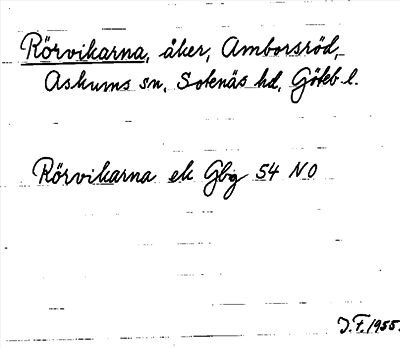 Rörvikarna, åker, Amborsröd,
Askums sn, Sotenäs hd, Göteb. l.
Rörvikarna ek Gbg 54 NO
J.F. 1955.